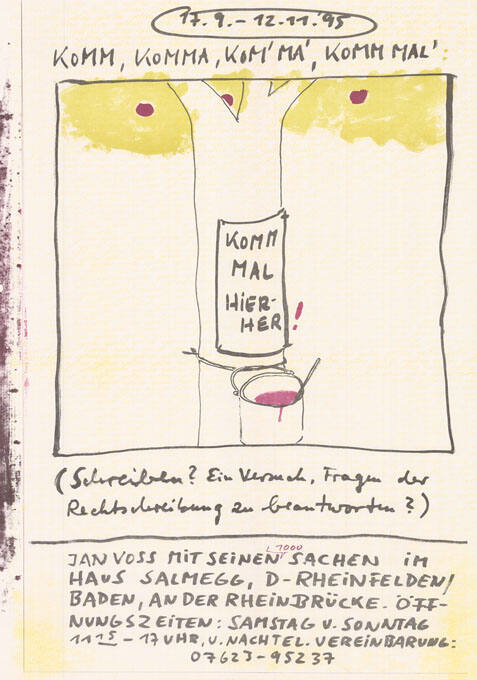 17.9. - 12.11.'95
KOMM, KOMMA, KOM'MA', KOMM MAL'
KOMM
MAL
HIER-
HER!
(Schreiben? Ein Versuch, Fragen der
Rechtschreibung zu beantworten?)
JAN VOSS MIT SEINEN 1000 SACHEN IM
HAUS SALMEGG, D-RHEINFELDEN/
BADEN, AN DER RHEINBRÜCKE. ÖFF-
NUNGSZEITEN: SAMSTAG U. SONNTAG
11 15 - 17 UHR, U. NACH TEL. VEREINBARUNG:
07623-95237